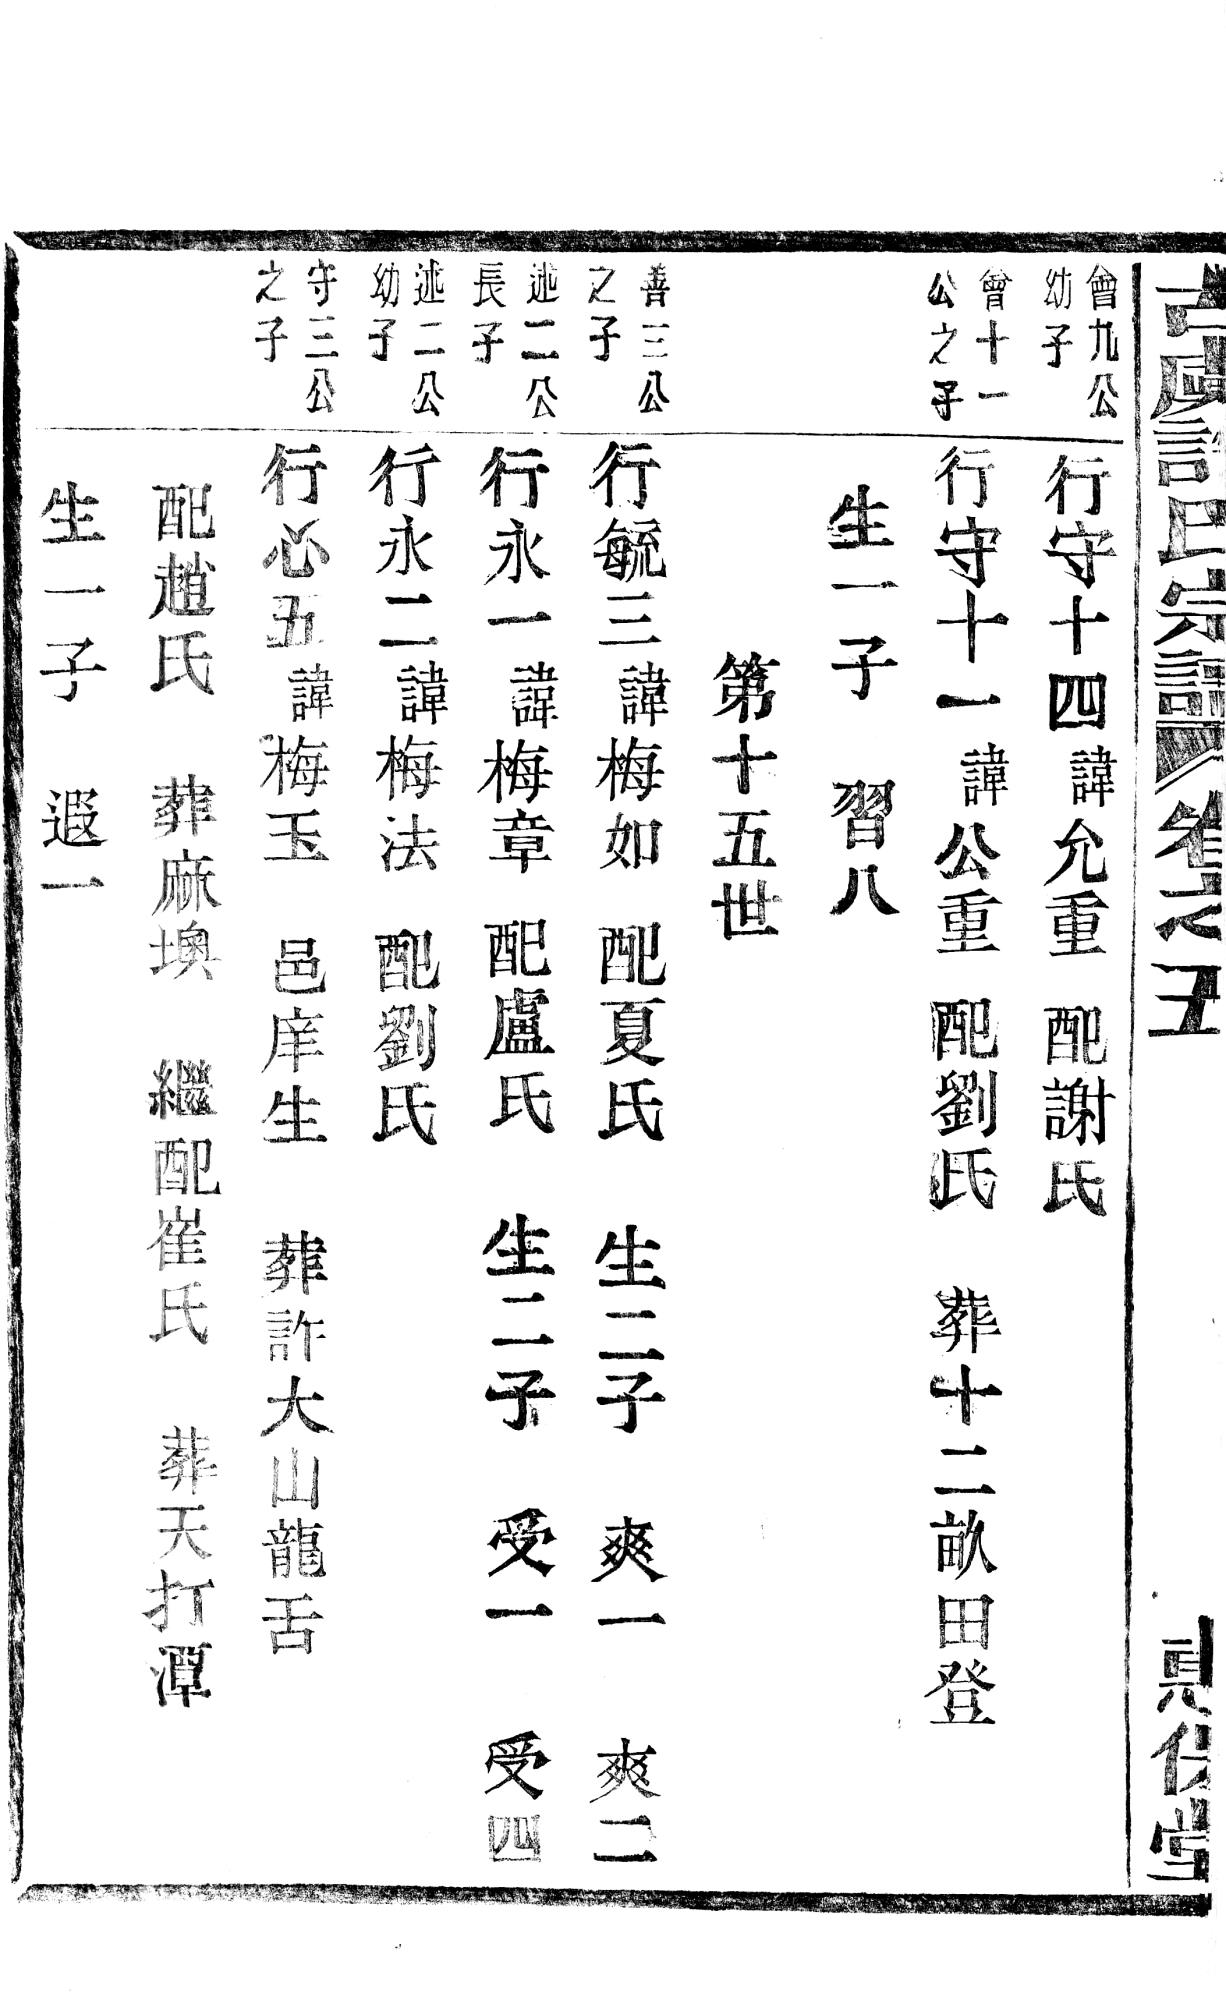 古虞許氏宗譜 卷之五 惇倫堂
曾九公
幼子
行守十四 諱允重 配謝氏
曾十一
公之子
行守十一 諱公重 配劉氏 葬十二畝田登
生一子 習八
第十五世
善三公
之子
行毓三 諱梅如 配夏氏 生二子 爽一 爽二
述二公
長子
行永一 諱梅章 配盧氏 生二子 受一 受四
述二公
幼子
行永二 諱梅法 配劉氏
守三公
之子
行必五 諱梅玉 邑庠生 葬許大山龍舌
配趙氏 葬麻墺 繼配崔氏 葬天打潭
生一子 遐一